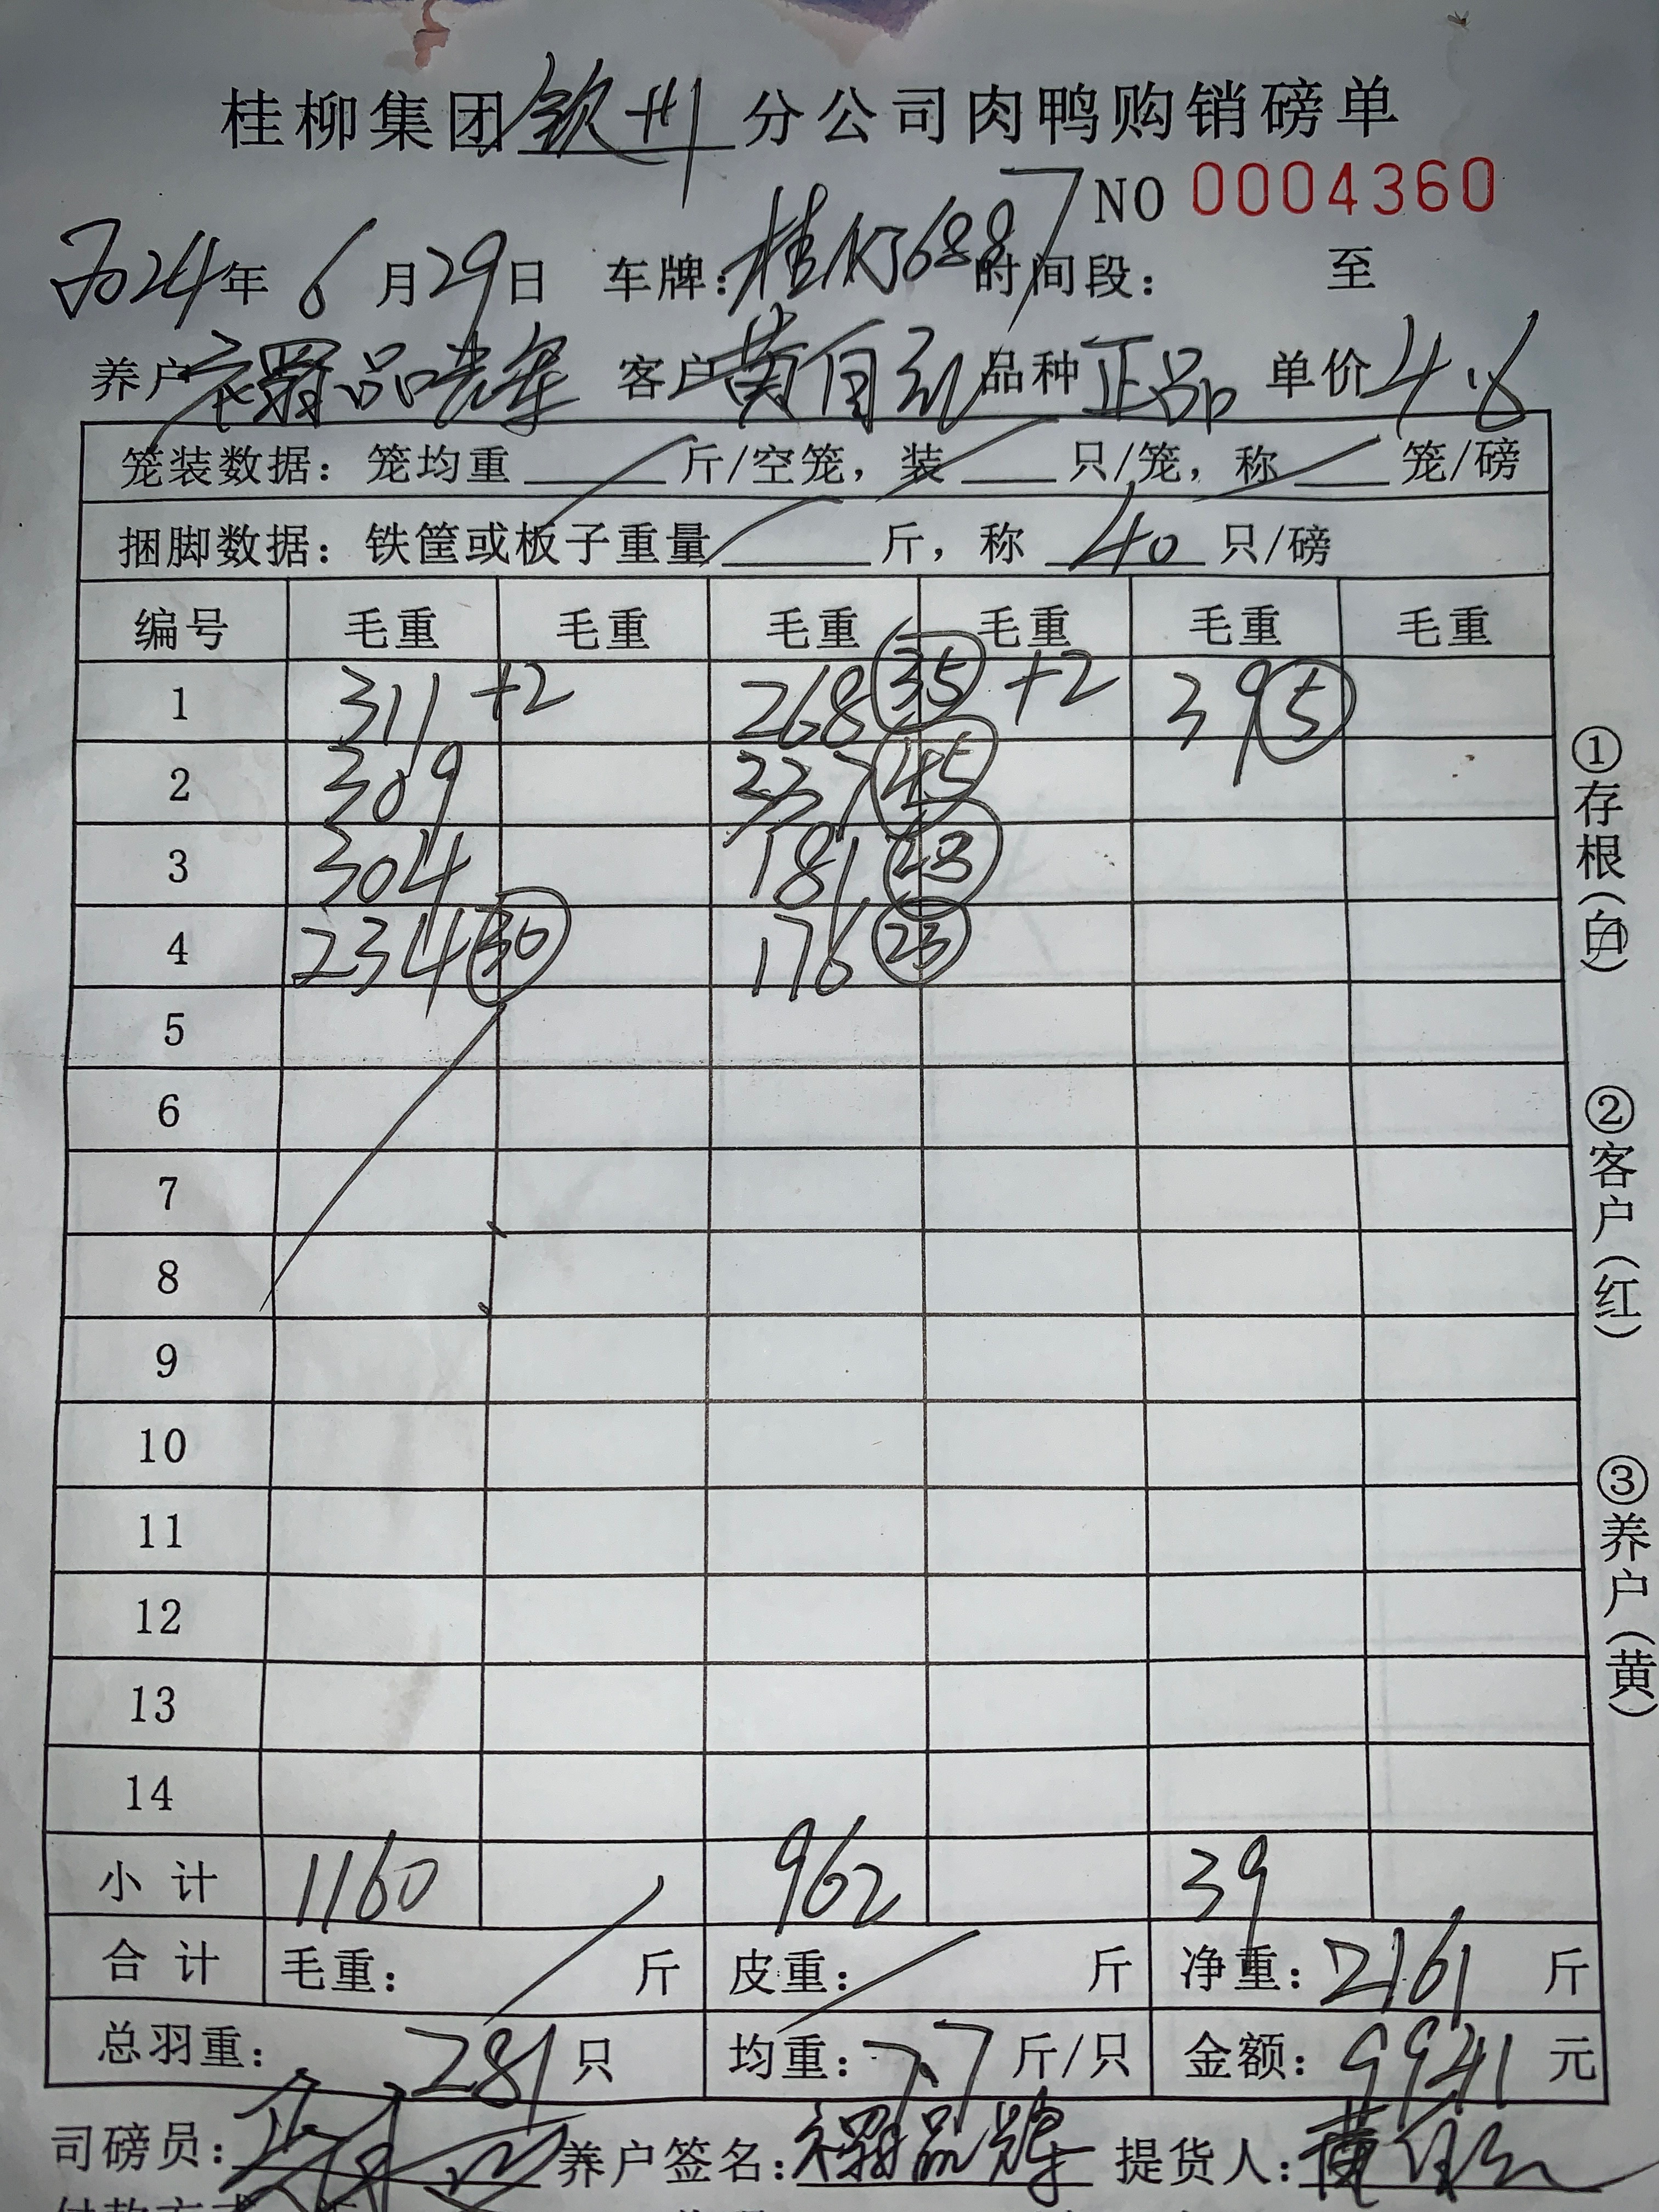 桂柳集团钦州分公司肉鸭购销磅单
NO 0004360
2024年6月29日 车牌:桂 6887 时间段: 至
养户 品 客户 黄 品种 正品 单价 4.6
笼装数据: 笼均重 斤/空笼, 装 只/笼, 称 笼/磅
捆脚数据: 铁筐或板子重量 斤, 称 40 只/磅
编号 毛重 毛重 毛重 毛重 毛重 毛重
1 311 +2 268 35 +2 39 5
2 309 337 45
3 304 181 23
4 234 30 176 23
5
6
7
8
9
10
11
12
13
14
小计 1160 962 39
合计 毛重: 斤 皮重: 斤 净重: 2161 斤
总羽重: 281 只 均重: 7.7 斤/只 金额: 9941 元
司磅员: 养户签名: 品 提货人: 黄
①存根(白)
②客户(红)
③养户(黄)